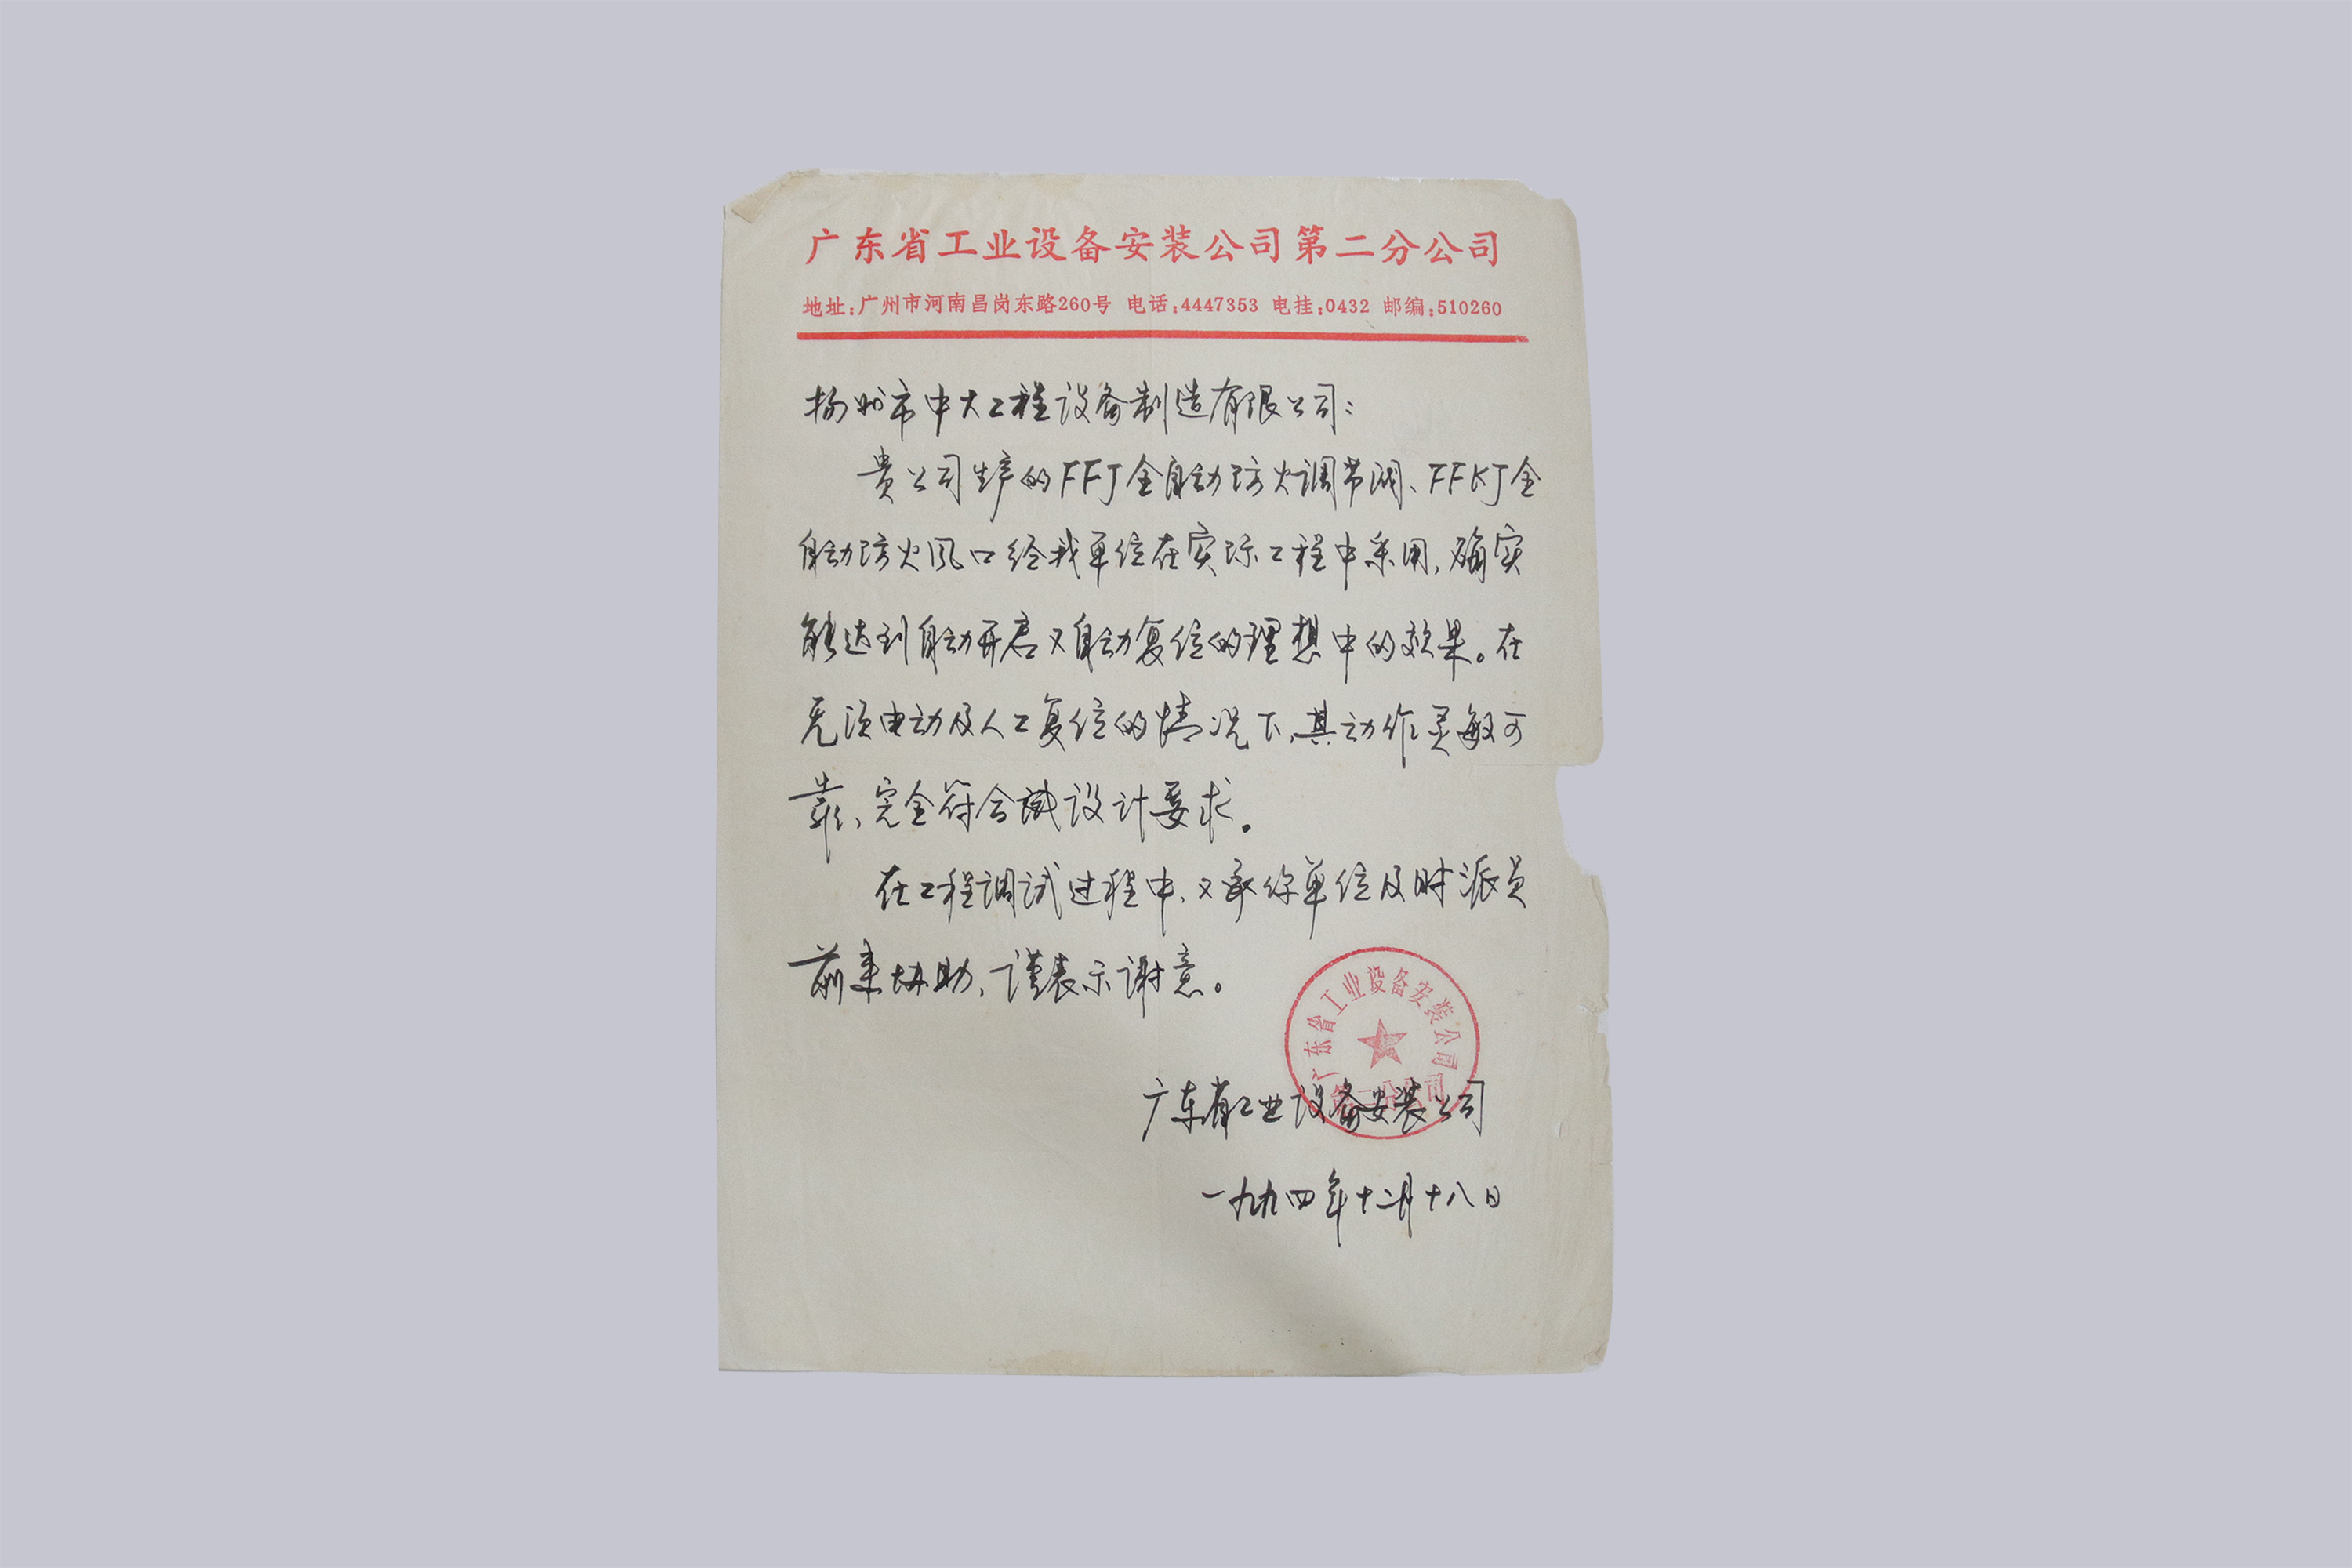 广东省工业设备安装公司第二分公司
地址:广州市河南昌岗东路260号 电话:4447353 电挂:0432 邮编:510260
扬州市中大工程设备制造有限公司:
贵公司生产的FFJ全自动防火调节阀、FFKJ全
自动防火风口经我单位在实际工程中采用,确实
能达到自动开启又自动复位的理想中的效果。在
无须电动及人工复位的情况下,其动作灵敏可
靠,完全符合设计要求。
在工程调试过程中,又承你单位及时派员
前来协助,谨表示谢意。
广东省工业设备安装公司
第二分公司
广东省工业设备安装公司
一九九四年十二月十八日